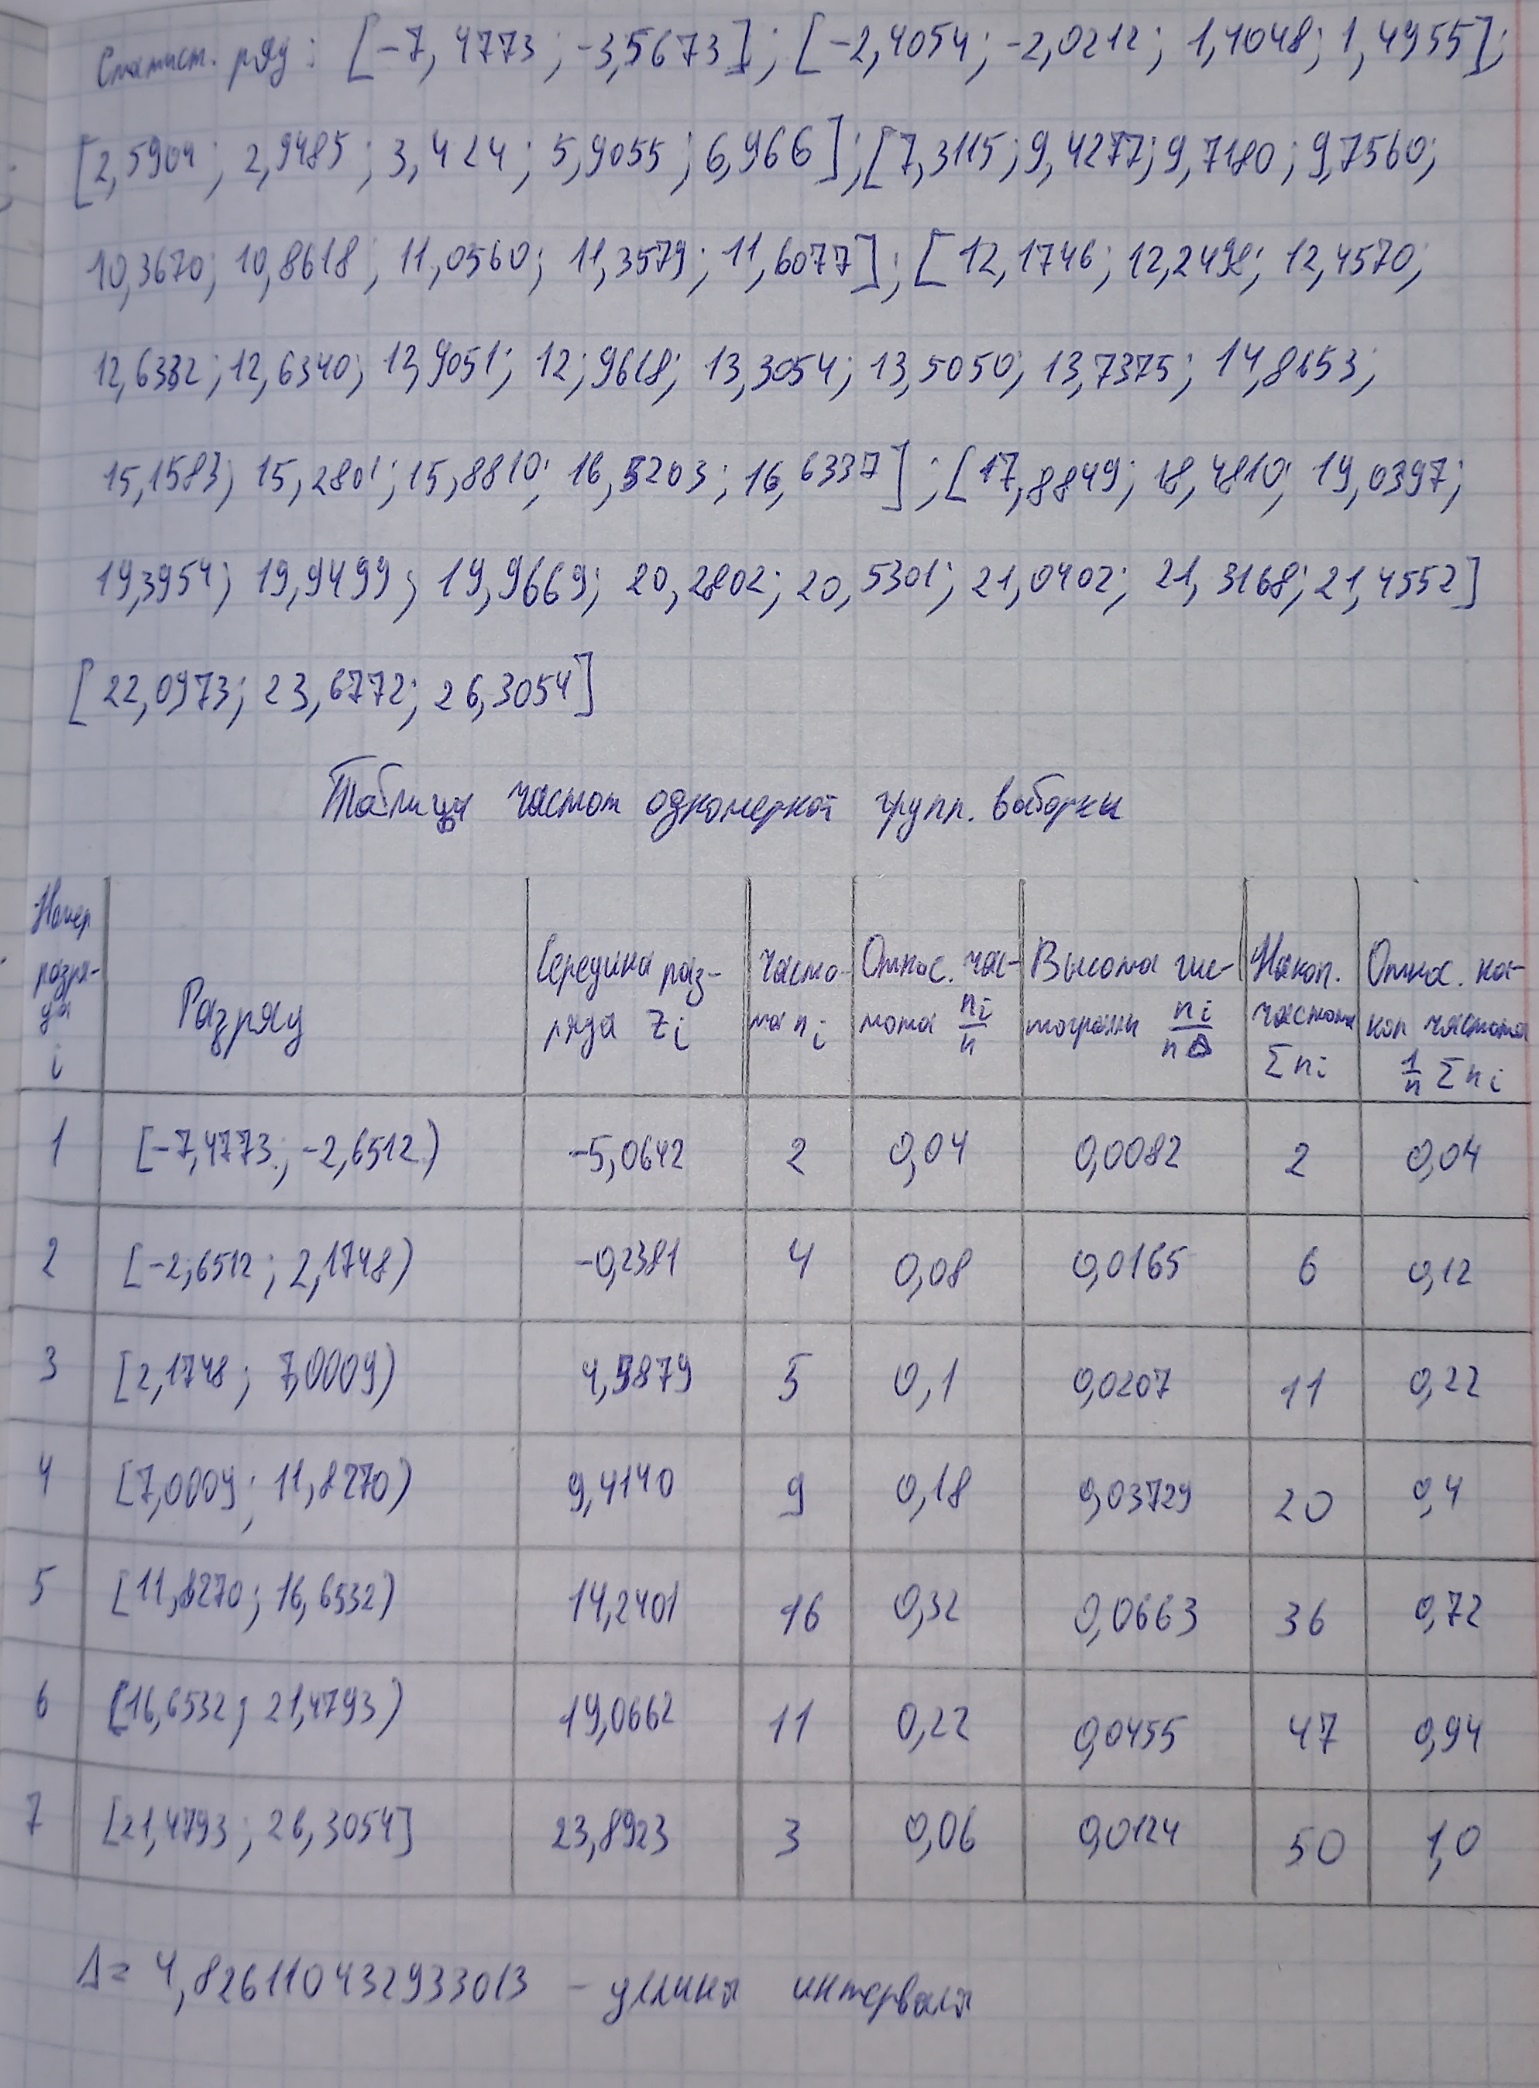 Статист. ряд: [-7,4773; -3,5673]; [-2,4054; -2,0212; 1,4048; 1,4955];
[2,5904; 2,9485; 3,424; 5,9055; 6,966]; [7,3115; 9,4277; 9,7180; 9,7560;
10,3670; 10,8618; 11,0560; 11,3579; 11,6077]; [12,1746; 12,2498; 12,4570;
12,6332; 12,6340; 12,9051; 12;9618; 13,3054; 13,5050; 13,7375; 14,8653;
15,1583; 15,2801; 15,8810; 16,5203; 16,6337]; [17,8849; 18,4810; 19,0397;
19,3954; 19,9499; 19,9669; 20,2802; 20,5301; 21,0402; 21,3168; 21,4552]
[22,0973; 23,6772; 26,3054]
Таблица частот одномерной групп. выборки
Номер разря-да i | Разряд | Середина раз-ряда Zi | Часто-та ni | Относ. час-тота ni/n | Высота гис-тограммы ni/nΔ | Накоп. частота Σni | Относ. на-коп частота 1/n Σni
1 [-7,4773; -2,6512) -5,0642 2 0,04 0,0082 2 0,04
2 [-2,6512; 2,1748) -0,2381 4 0,08 0,0165 6 0,12
3 [2,1748; 7,0009) 4,5879 5 0,1 0,0207 11 0,22
4 [7,0009; 11,8270) 9,4140 9 0,18 0,03729 20 0,4
5 [11,8270; 16,6532) 14,2401 16 0,32 0,0663 36 0,72
6 [16,6532; 21,4793) 19,0662 11 0,22 0,0455 47 0,94
7 [21,4793; 26,3054] 23,8923 3 0,06 0,0124 50 1,0
Δ = 4,826110432933013 - длина интервала